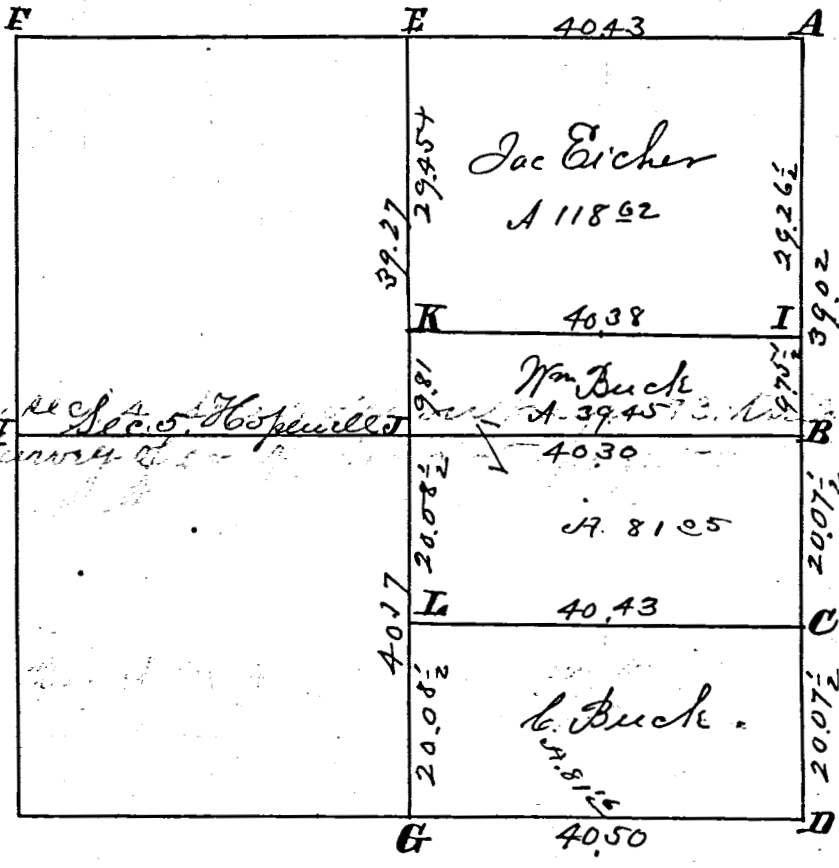 F E 40.43 A
Jac Eicher
A 118 62
29.45+
39.27
29.26½
39.02
K 40.38 I
Wm Buck
A. 39.45
9.81
9.75½
Sec. 5. Hopewell J B
40.30
20.08½
A. 81 05
20.07½
40.17
L 40.43 C
20.08½
C. Buck.
A. 81 16
20.07½
G 40.50 D